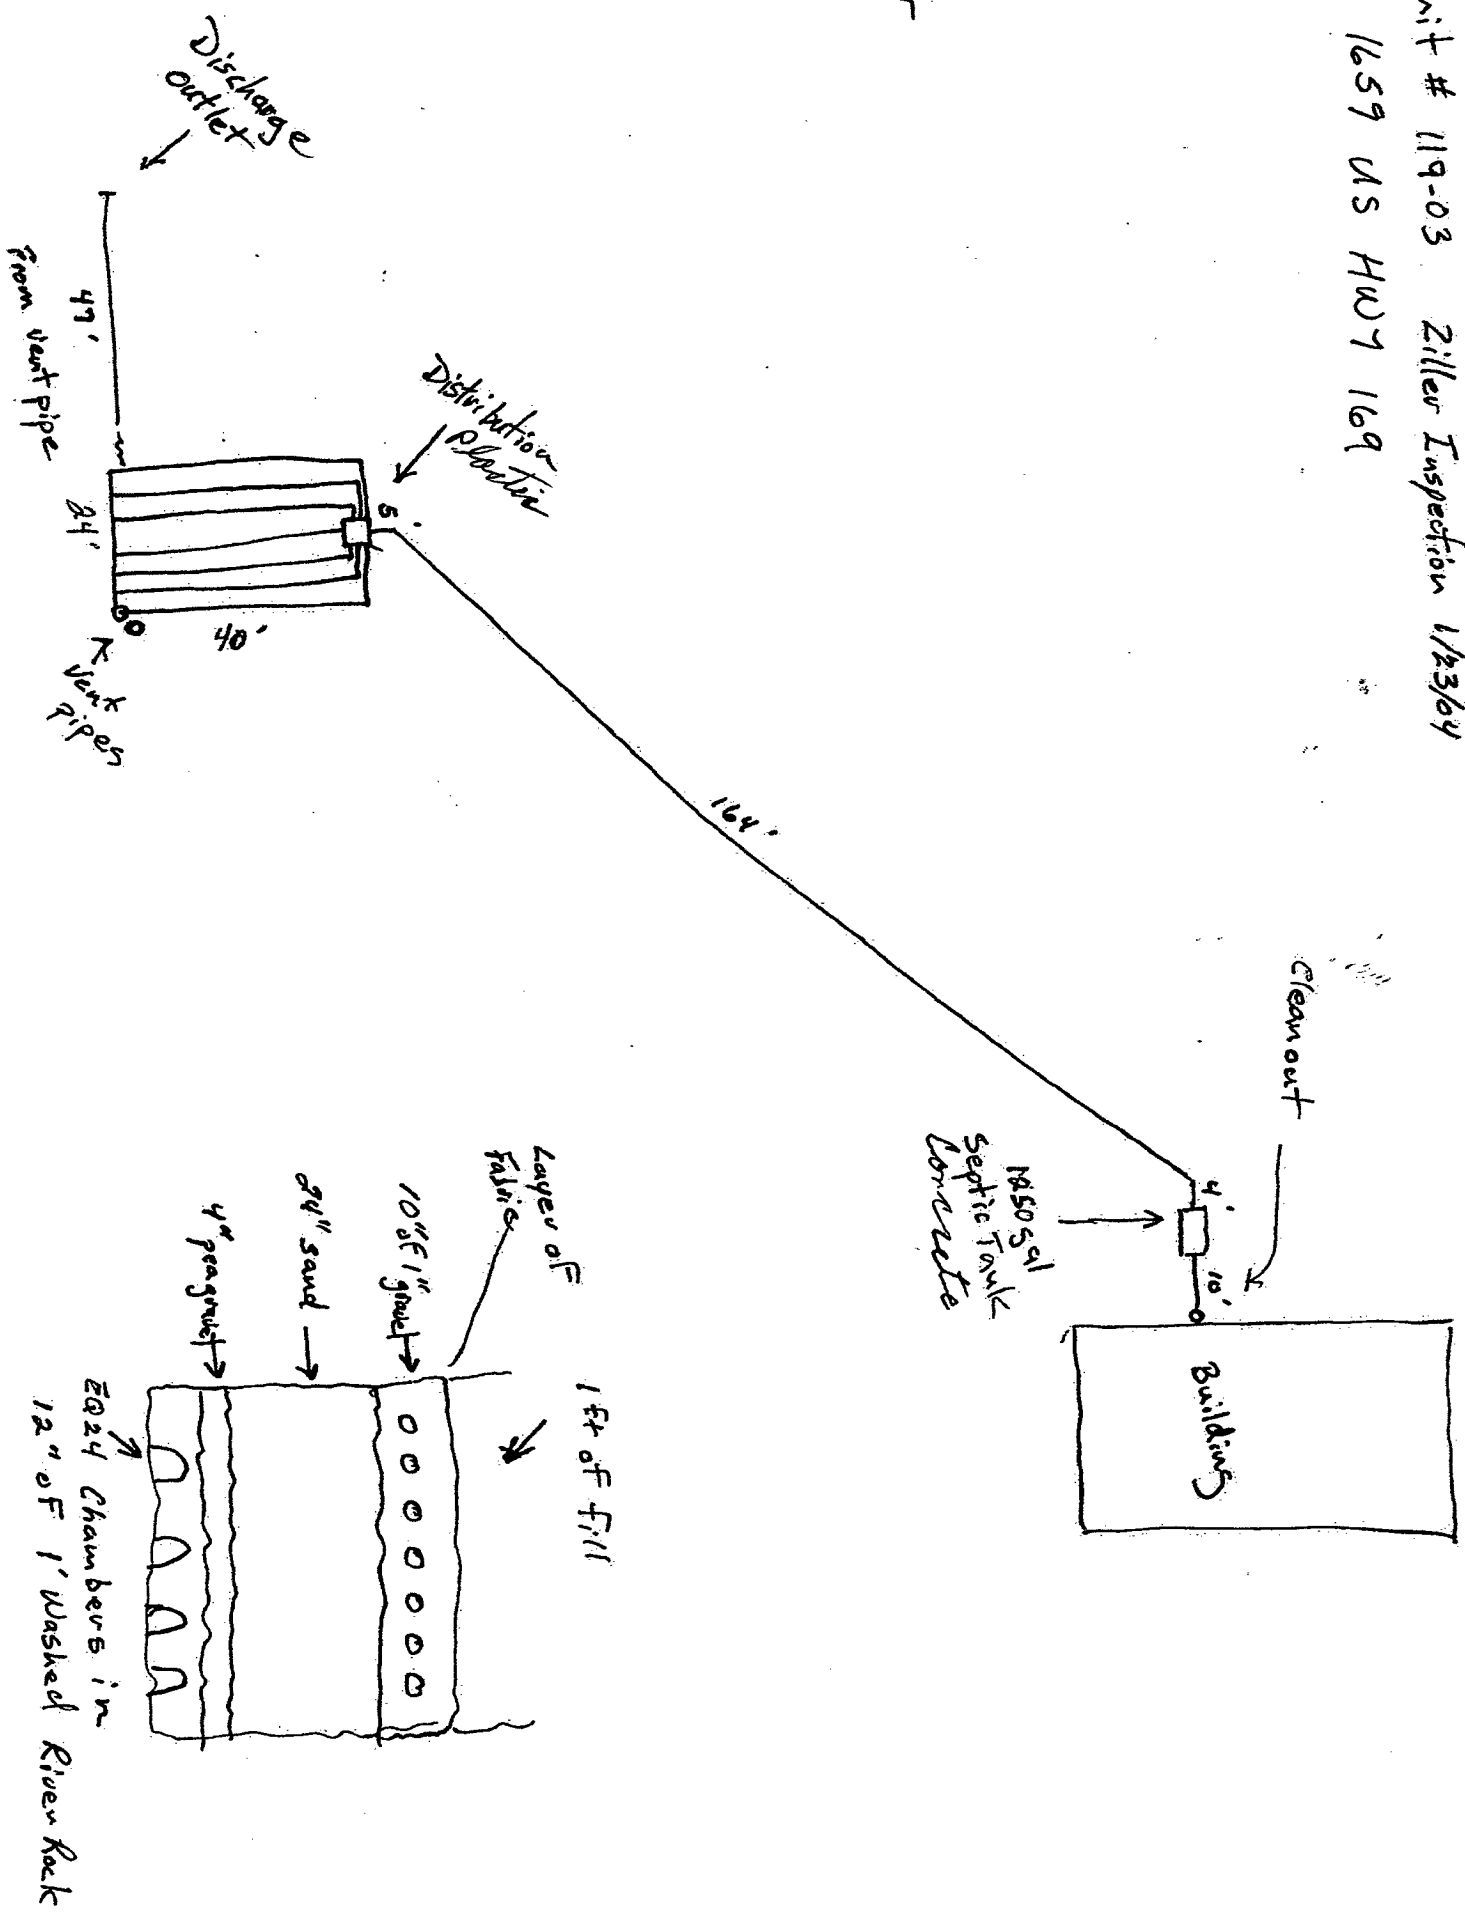 mit # 119-03 Ziller Inspection 1/23/04
1659 US HWY 169
Cleanout
10'
4'
1250 gal
Septic Tank
Concrete
Building
164'
Distribution
Plastic
5'
Discharge
outlet
47'
From vent pipe
24'
40'
Vent
pipes
1 ft of fill
Layer of
Fabric
10" of 1" gravel
24" sand
4" peagravel
EQ24 Chambers in
12" of 1' Washed River Rock